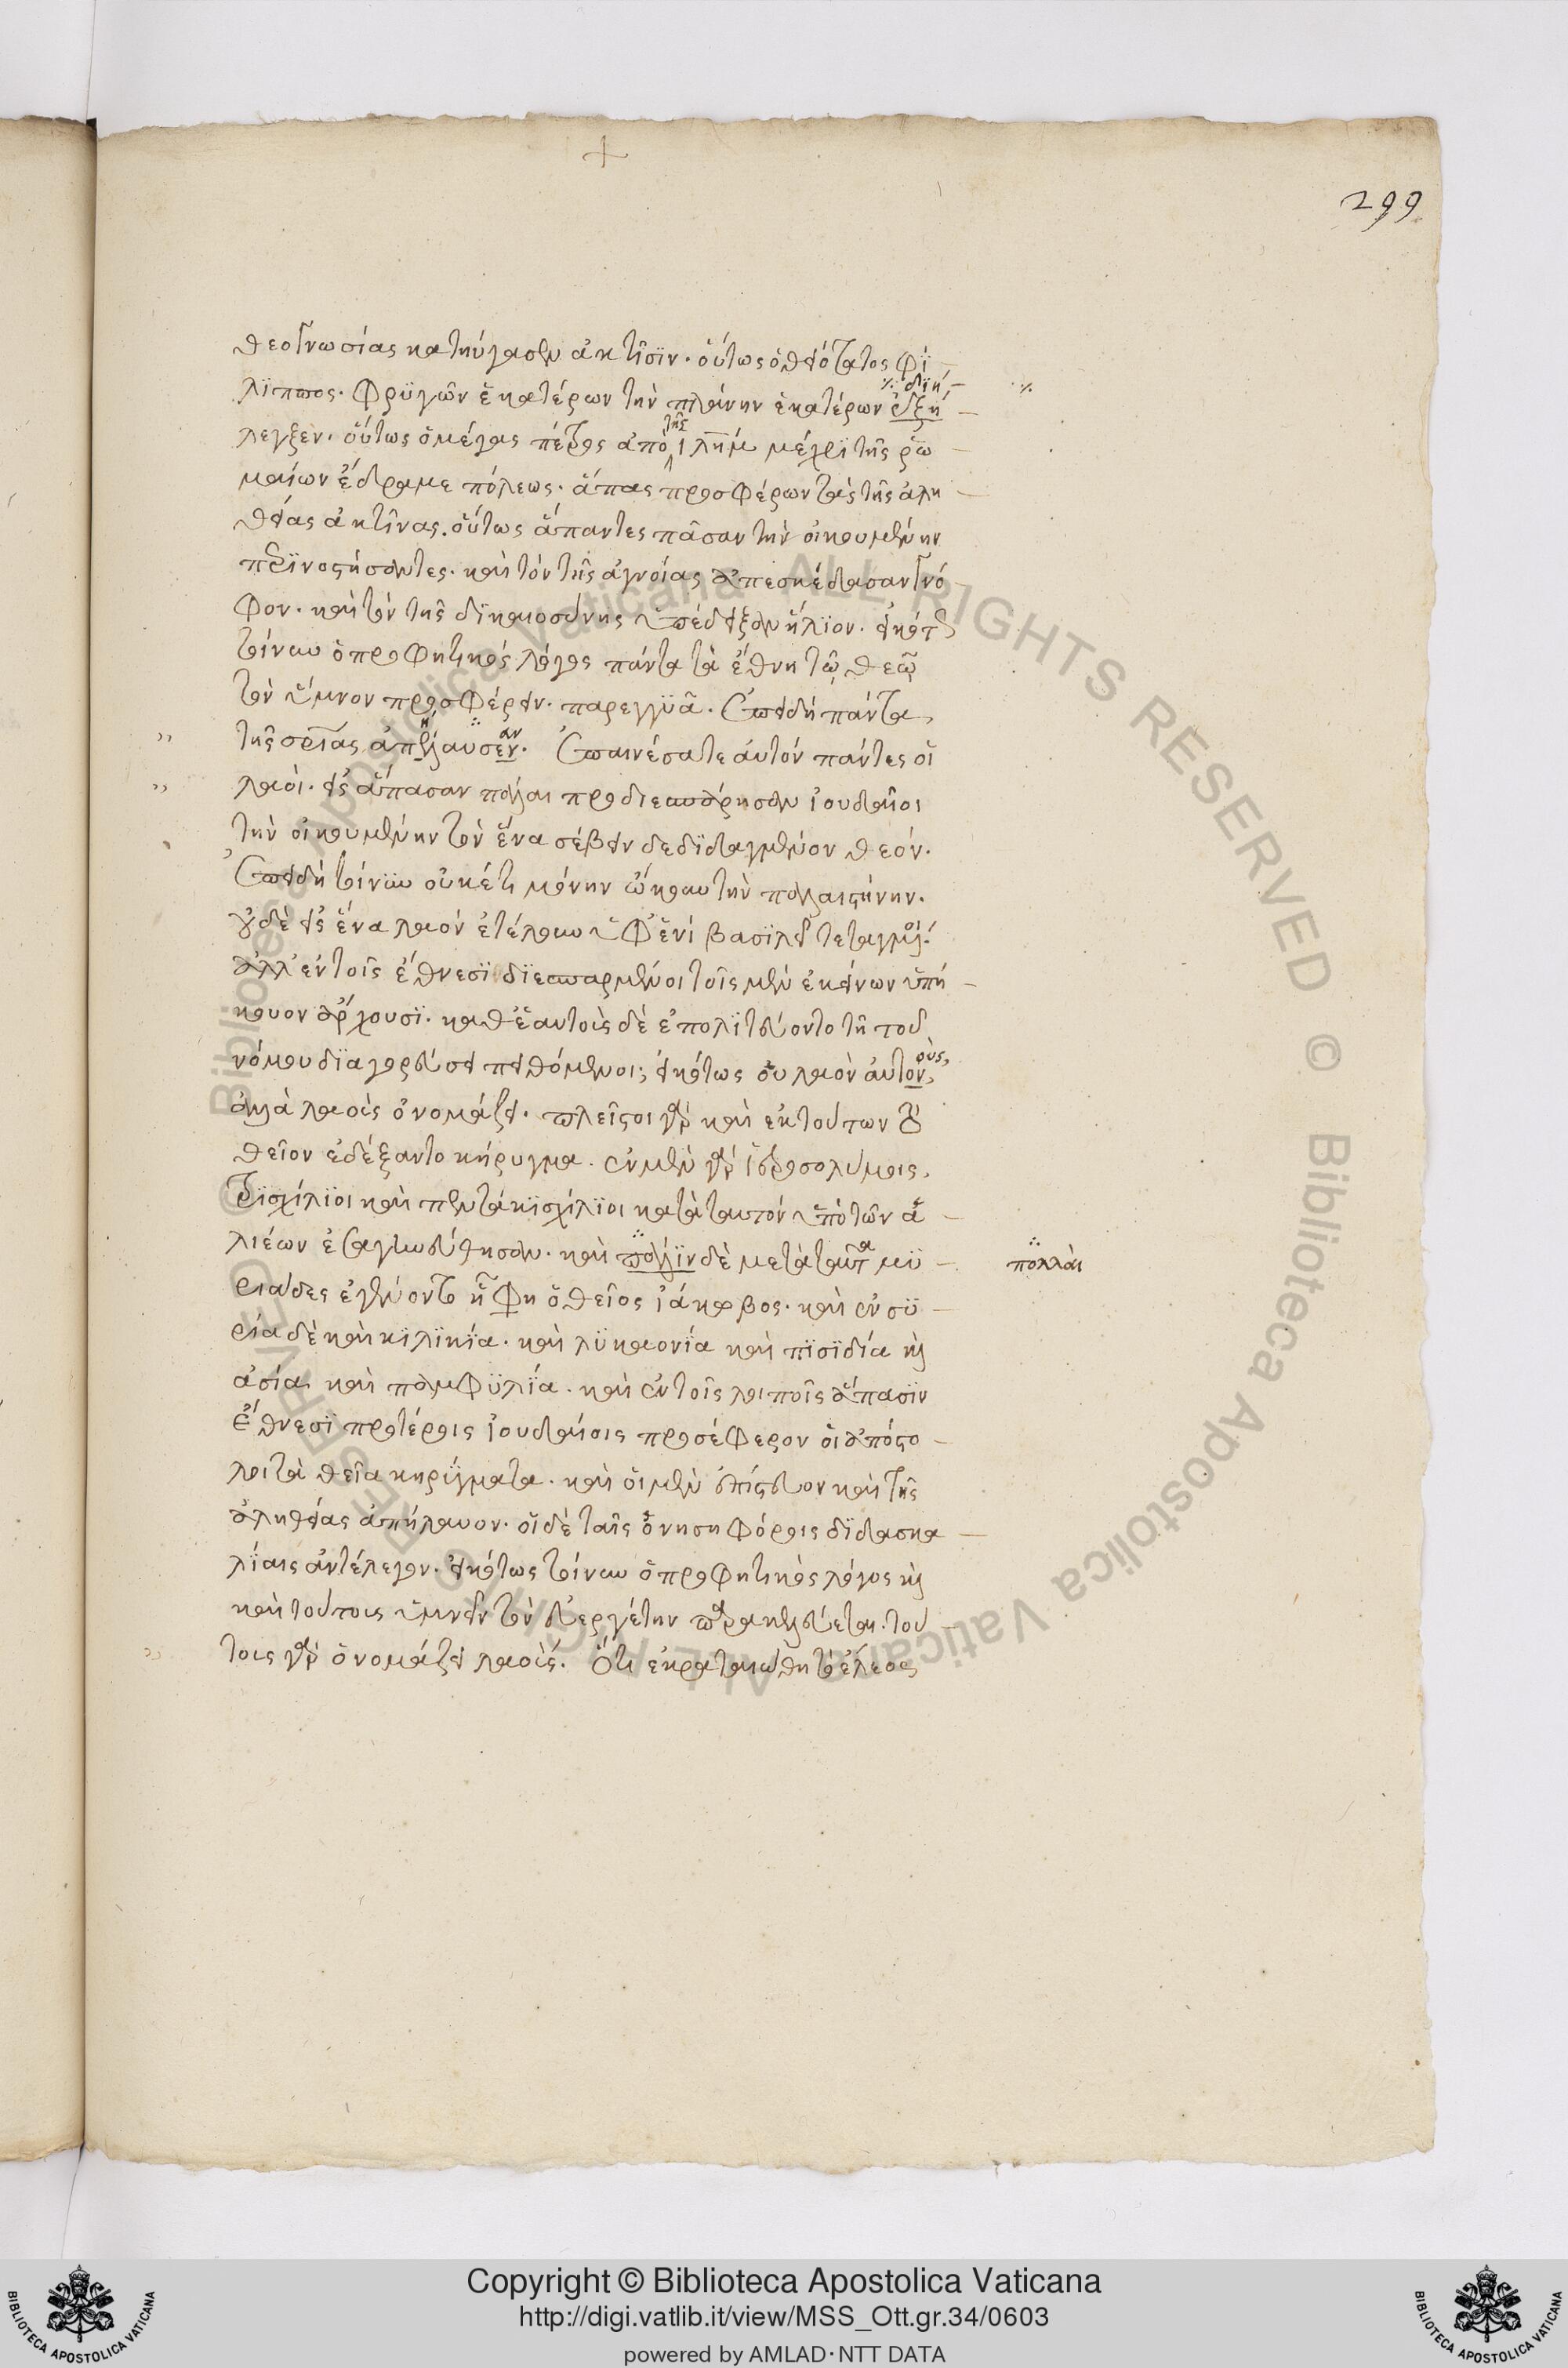 +
299
θεογνωσίας κατηύγασεν ἀκτῖσϊν· οὕτως ὁ θειότατος φί
λϊππος· φρϋγῶν ἑκατέρων τὴν πλάνην ἑκατέρων ἐξή
διή
λεγξεν· οὕτως ὁ μέγας πέτρος ἀπὸ τῆς ιλημ μέχρϊ τῆς ρω
μαίων ἔδραμε πόλεως· ἅπας προσφέρων τὰς τῆς ἀλη
θείας ἀκτῖνας. οὕτως ἅπαντες πᾶσαν τὴν οἰκουμένην
περϊνοστήσαντες· καὶ τὸν τῆς ἀγνοίας ἀπεσκέδασαν γνό
φον· καὶ τὸν τῆς δϊκαιοσύνης ὑπέδειξαν ἥλϊον· εἰκότως
τοίνυν ὁ προφητικὸς λόγος πάντα τὰ ἔθνη τῷ θεῷ
τὸν ὕμνον προσφέρειν· παρεγγϋᾷ. ἐπειδὴ πάντα
τῆς σρίας ἀπήλαυσεν· αν ἐπαινέσατε αὐτόν πάντες οἱ
λαοί· εἰς ἅπασαν πάλαι προδιεσπάρησαν ἰουδαῖοι
τὴν οἰκουμένην τὸν ἕνα σέβειν δεδϊδαγμένον θεόν.
ἐπειδὴ τοίνϋν οὐκέτι μόνην ᾤκουν τὴν παλαιστήνην.
οὐδὲ εἰς ἕνα λαὸν ἐτέλουν ὑφ' ἑνί βασϊλεῖ τεταγμένοι·
ἀλλ' ἐν τοῖς ἔθνεσϊ δϊεσπαρμένοι τοῖς μὲν ἐκείνων ὑπή
κουον ἄρχουσϊ· καθ' ἑαυτοὺς δὲ ἐπολϊτεύοντο τῇ τοῦ
νόμου δϊαγορεύσει πειθόμενοι; εἰκότως οὐ λαὸν αὐτον,
ους,
ἀλλὰ λαοὺς ὀνομάζει· πλεῖστοι γὰρ καὶ ἐκ τούτων τὸ
θεῖον ἐδέξαντο κήρυγμα. ἐν μὲν γὰρ ἱεροσολύμοις,
τρϊσχίλϊοι καὶ πεντάκϊσχίλϊοι κατὰ ταυτόν ὑπὸ τῶν ἁ
λιέων ἐσαγηνεύθησαν· καὶ πάλϊν δὲ μετὰ ταῦτα μϋ
πολλαὶ
ριάδες ἐγένοντο ᾗ φη ὁ θεῖος ἰάκωβος· καὶ ἐν σϋ
ρία δὲ καὶ κϊλϊκϊα· καὶ λϋκαονϊα καὶ πϊσϊδία καὶ
ἀσία καὶ παμφϋλϊα· καὶ ἐν τοῖς λοιποῖς ἅπασϊν
ἔθνεσϊ προτέροις ἰουδαίοις προσέφερον οἱ ἀπόστο
λοι τὰ θεῖα κηρύγματα· καὶ οἱ μὲν ἐπίστευον καὶ τῆς
ἀληθείας ἀπήλαυον· οἱ δὲ ταῖς ὀνησηφόροις δϊδασκα
λϊαις ἀντέλεγον· εἰκότως τοίνυν ὁ προφητικὸς λόγος καὶ
καὶ τούτους ὑμνεῖν τὸν εὐεργέτην παρακελεύεται· τού
τοις γὰρ ὀνομάζει λαοὺς· Ὅτι ἐκραταιώθη τὸ ἔλεος
Copyright © Biblioteca Apostolica Vaticana
http://digi.vatlib.it/view/MSS_Ott.gr.34/0603
powered by AMLAD·NTT DATA